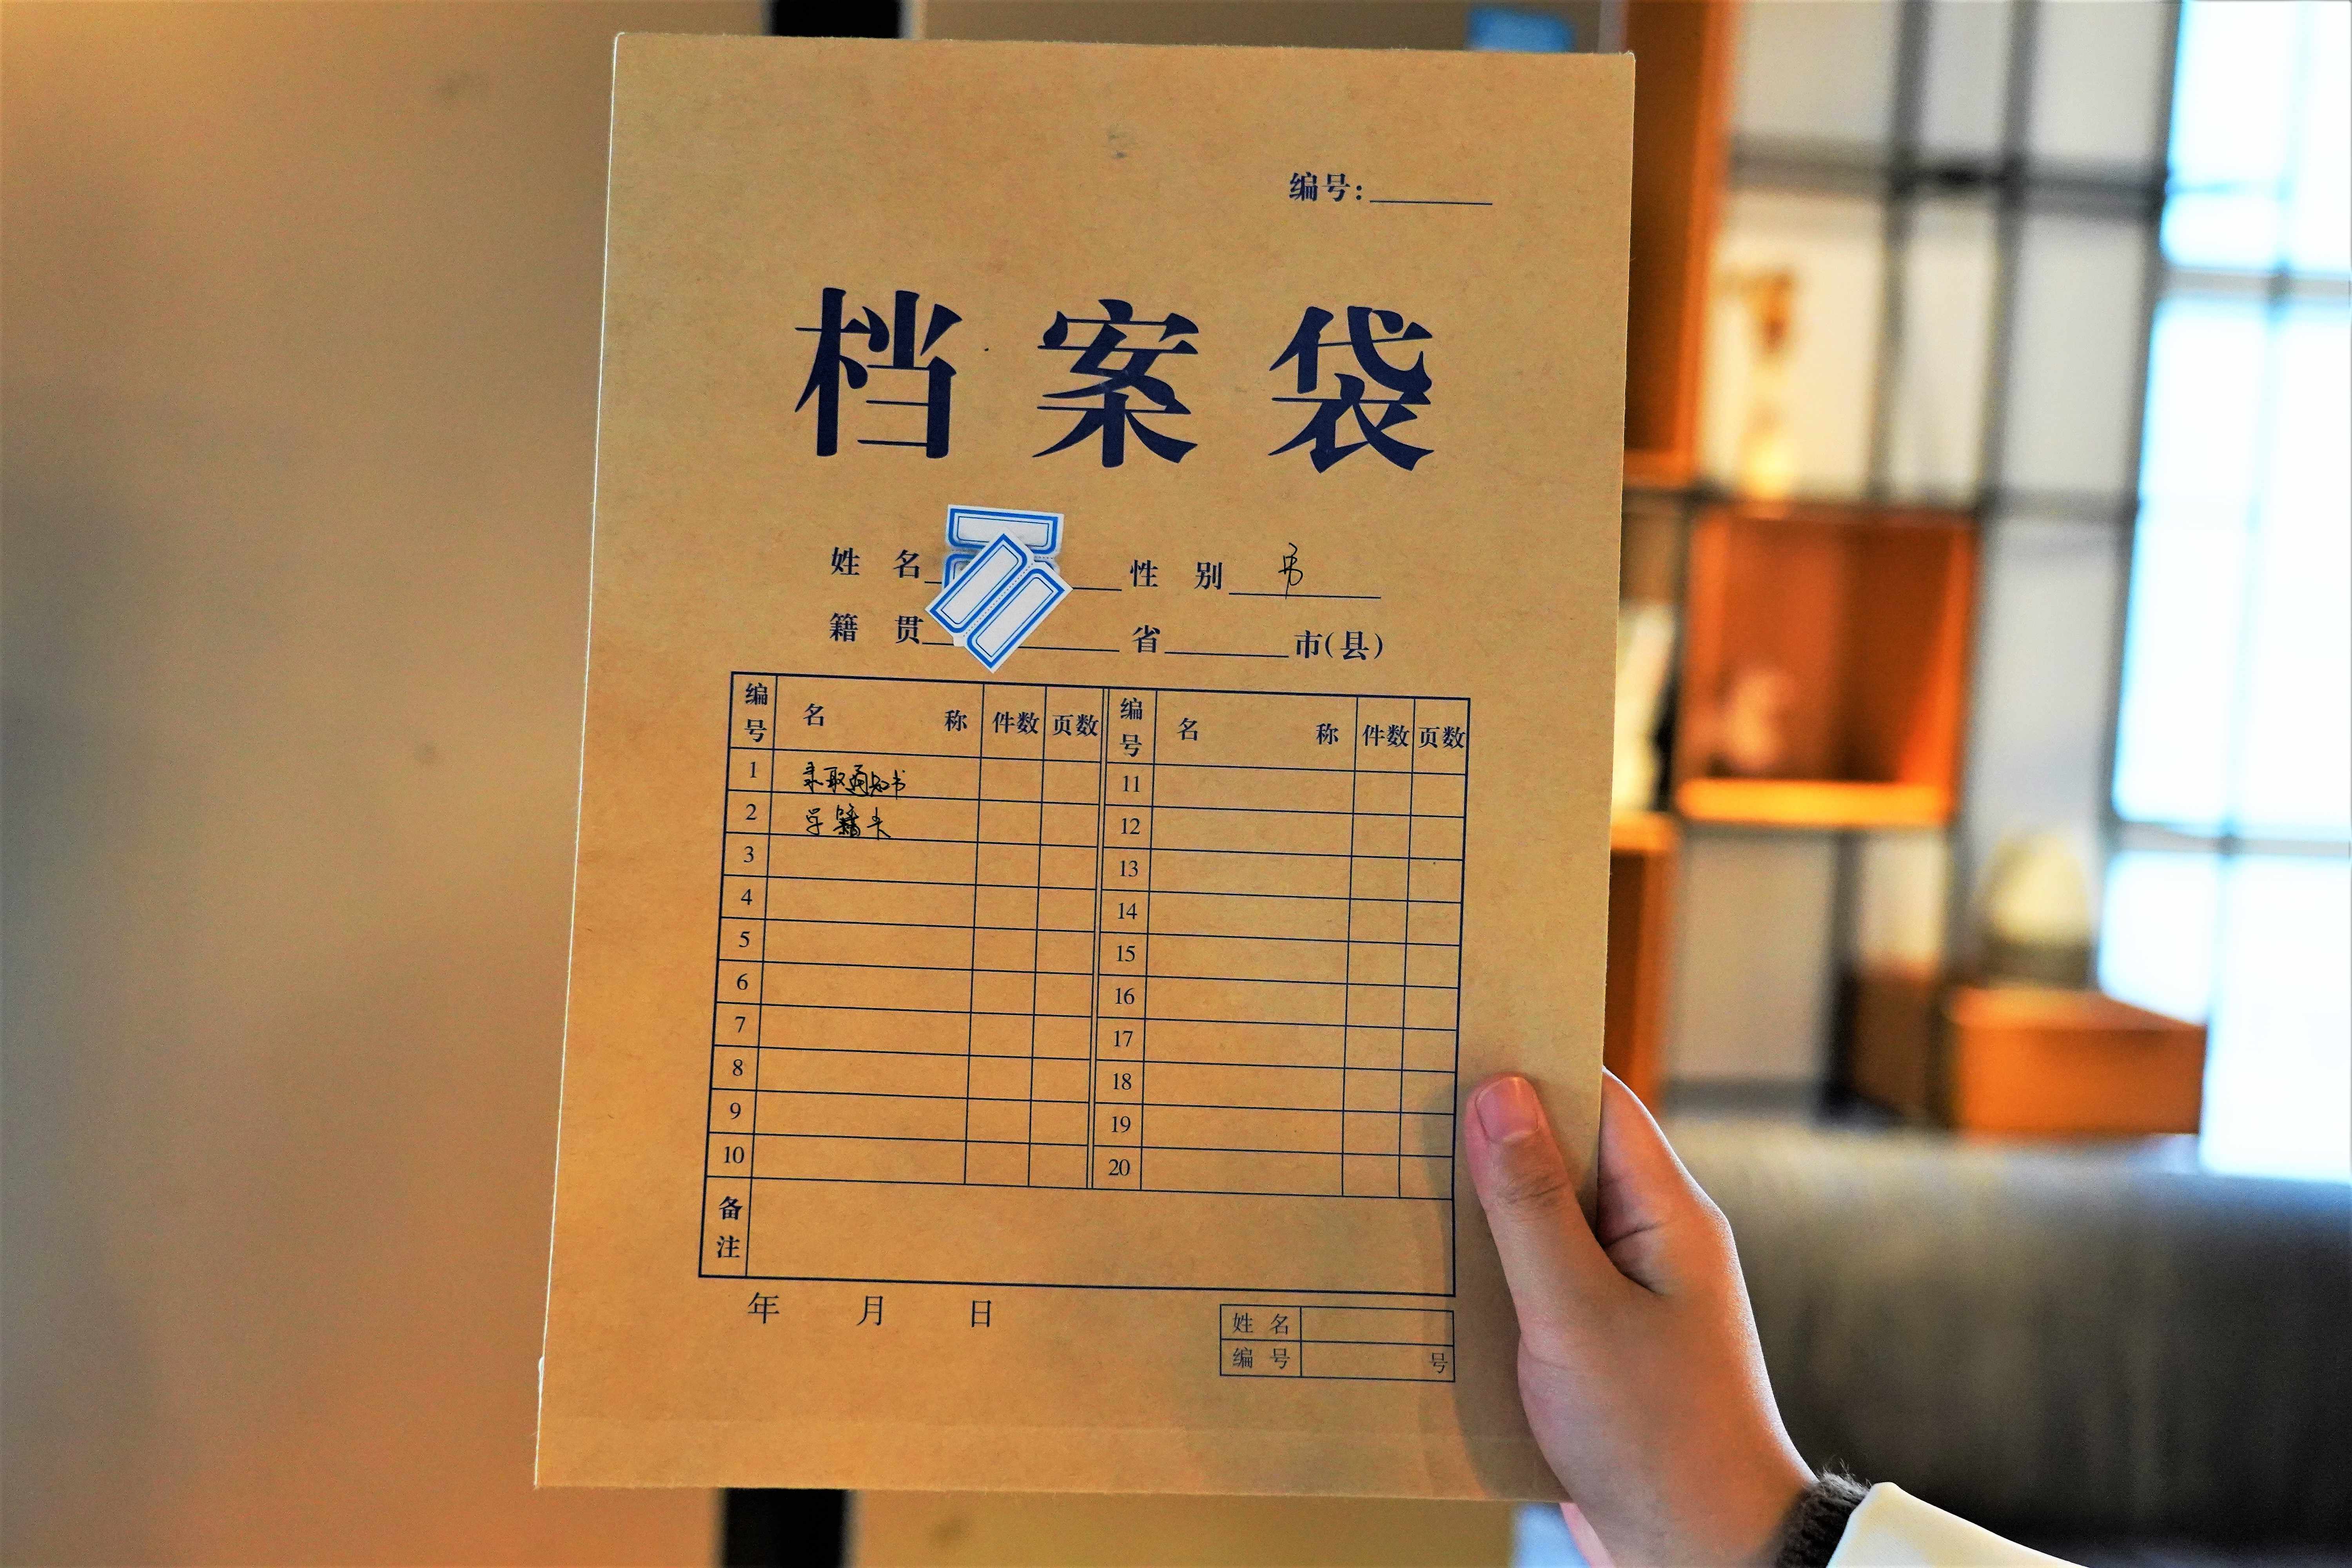 编号:
档案袋
姓名 性别 男
籍贯 省 市(县)
编号 名称 件数 页数 编号 名称 件数 页数
1 录取通知书 11
2 学籍卡 12
3 13
4 14
5 15
6 16
7 17
8 18
9 19
10 20
备注
年 月 日
姓名
编号 号